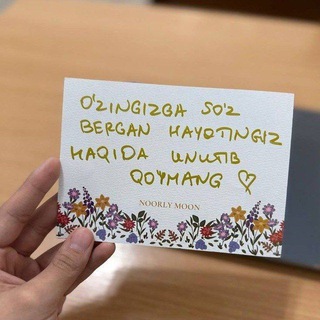 O'ZINGIZGA SO'Z
BERGAN HAYOTINGIZ
HAQIDA UNUTIB
QO'YMANG
NOORLY MOON